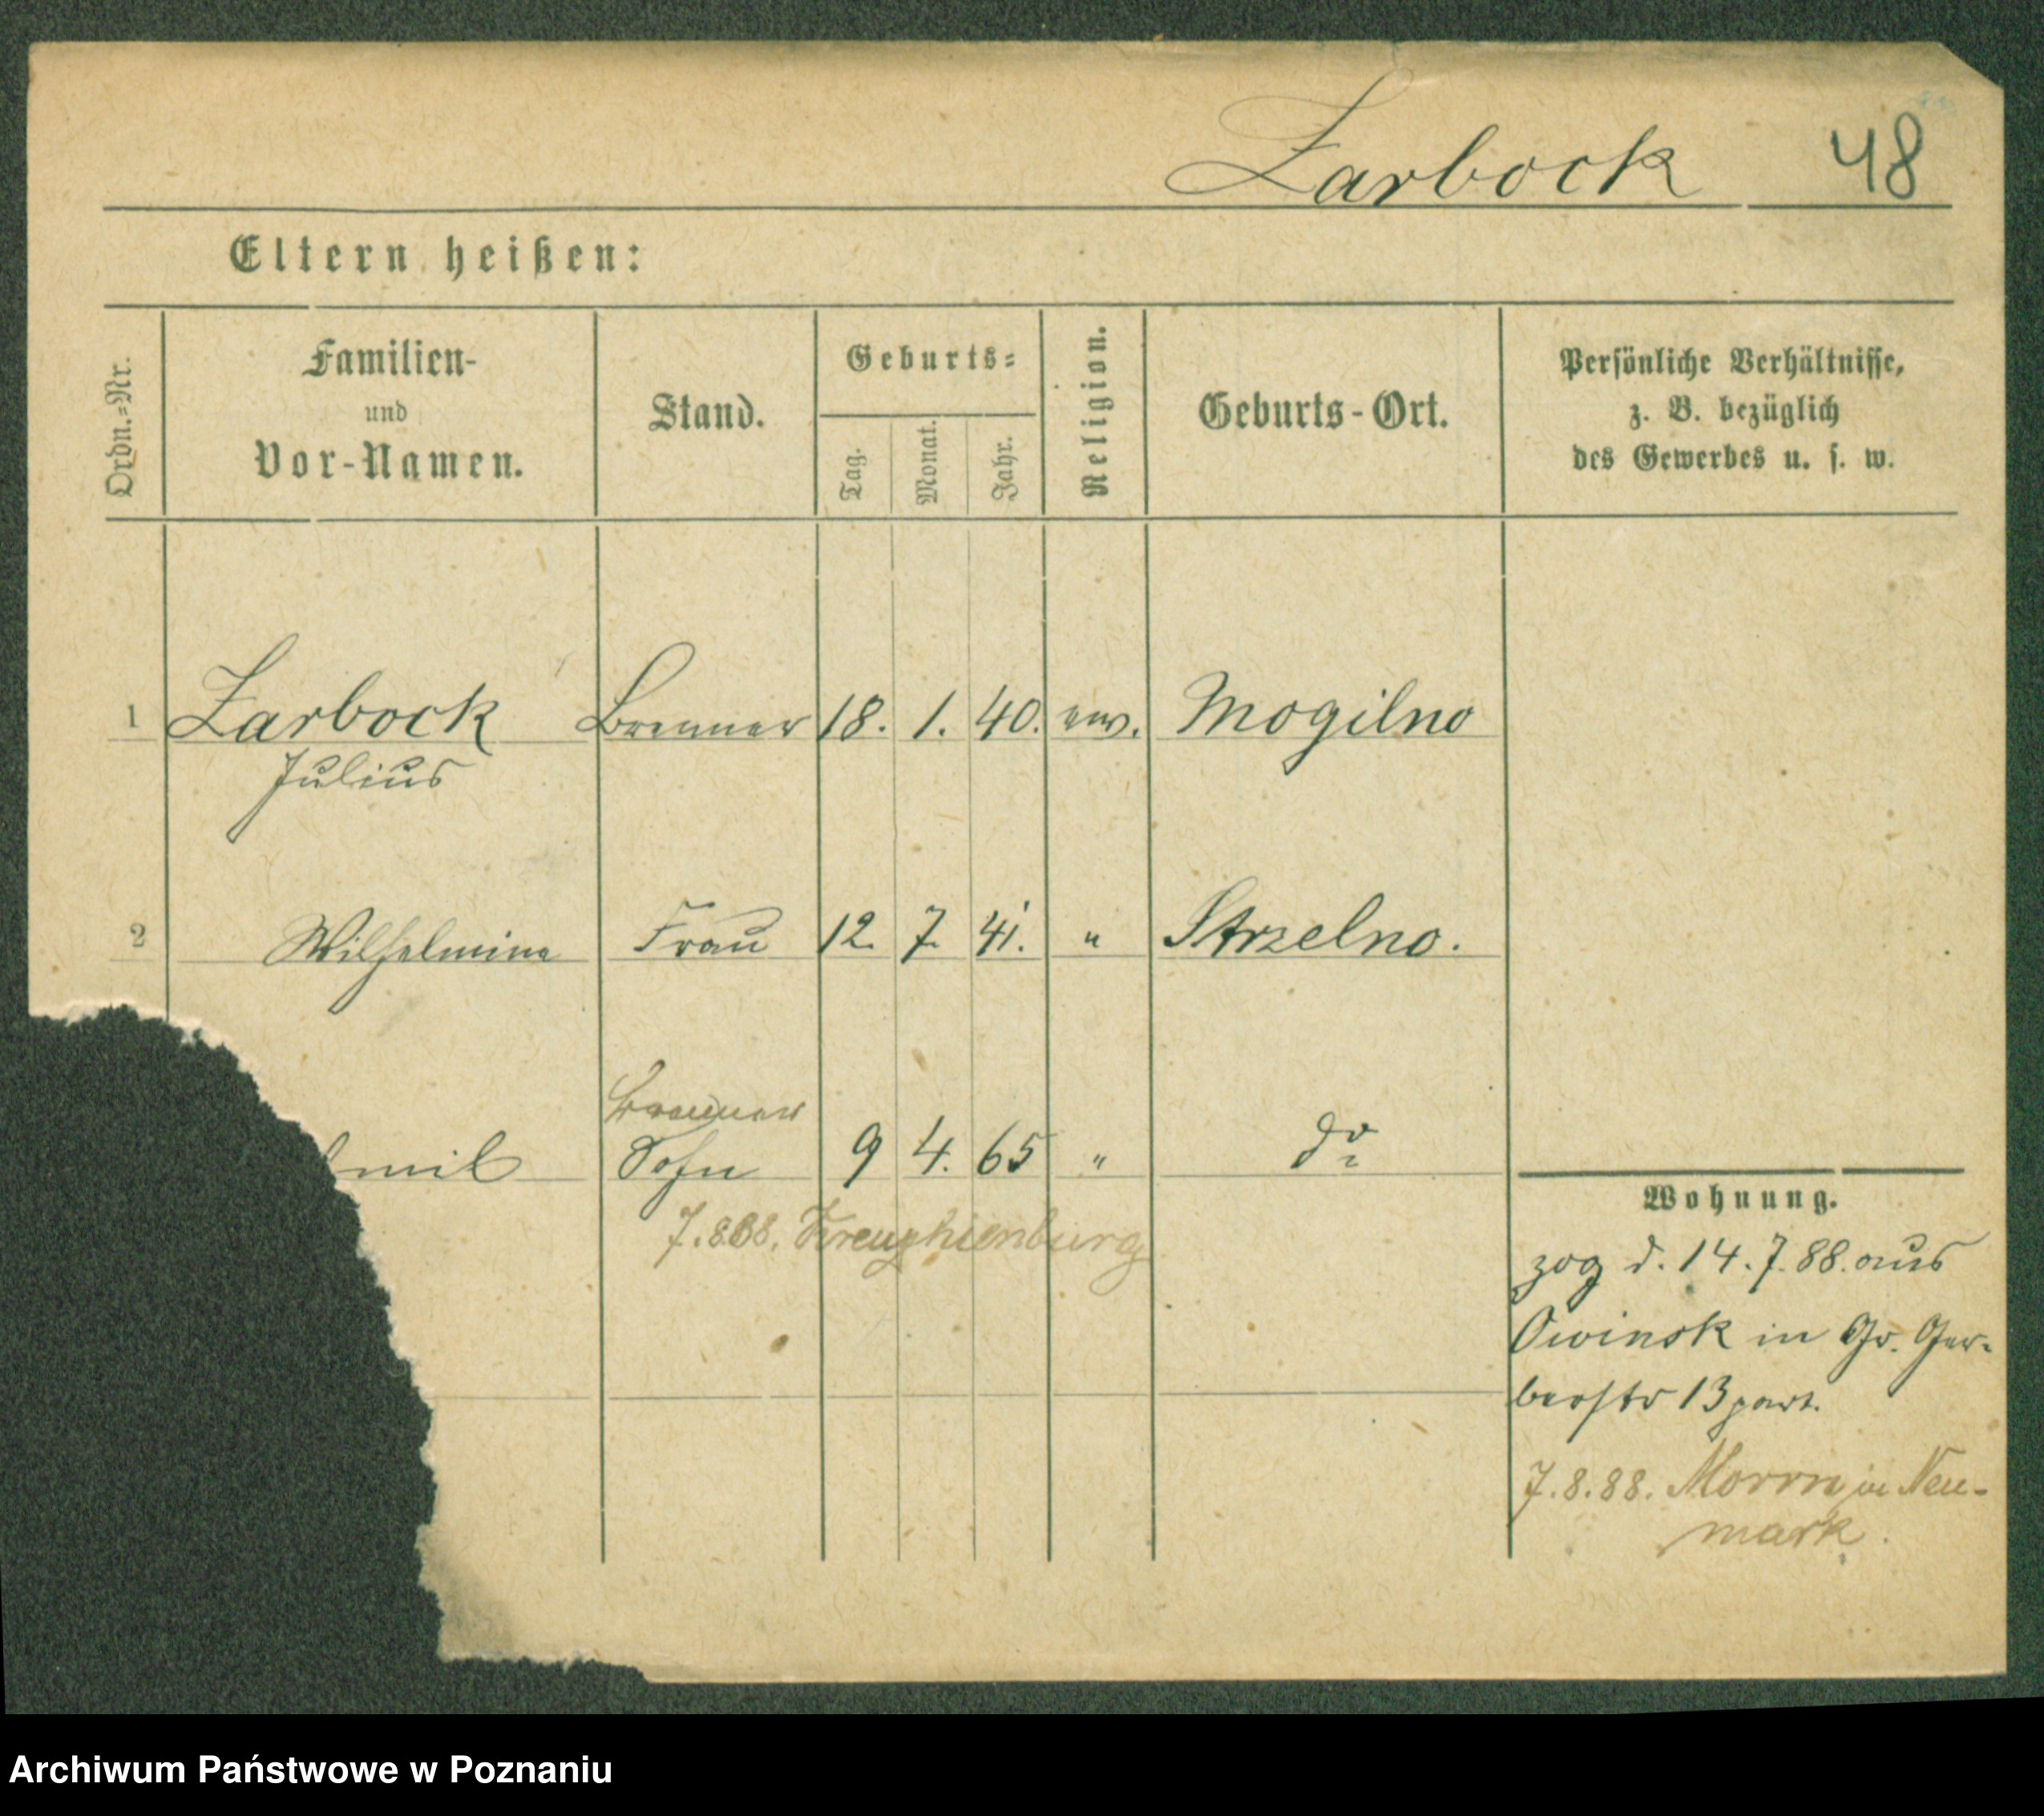 Zarbock 48
Eltern heißen:
Ordn.=Nr.
Familien-
und
Vor-Namen.
Stand.
Geburts=
Tag.
Monat.
Jahr.
Religion.
Geburts-Ort.
Persönliche Verhältnisse,
z. B. bezüglich
des Gewerbes u. s. w.
1 Zarbock Brenner 18. 1. 40. ev. Mogilno
Julius
2 Wilhelmine Frau 12. 7. 41. " Strzelno.
Brenner
mil Sohn 9 4. 65 " do
7.8.88.
Wohnung.
zog d. 14.7.88. aus
Owinsk in Gr. Ger-
berstr 13 part.
7.8.88. Morrn in Neu-
mark.
Archiwum Państwowe w Poznaniu